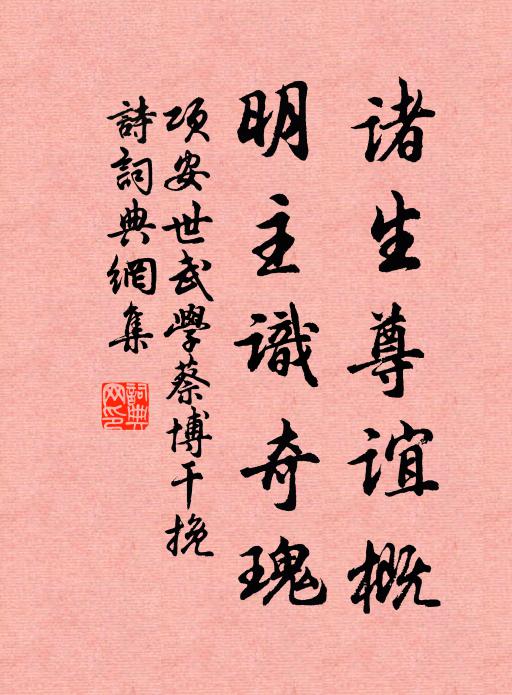 诸生尊谊概
明主識奇瑰
项安世武學蔡博干挽
詩詞典網集
詞典網印